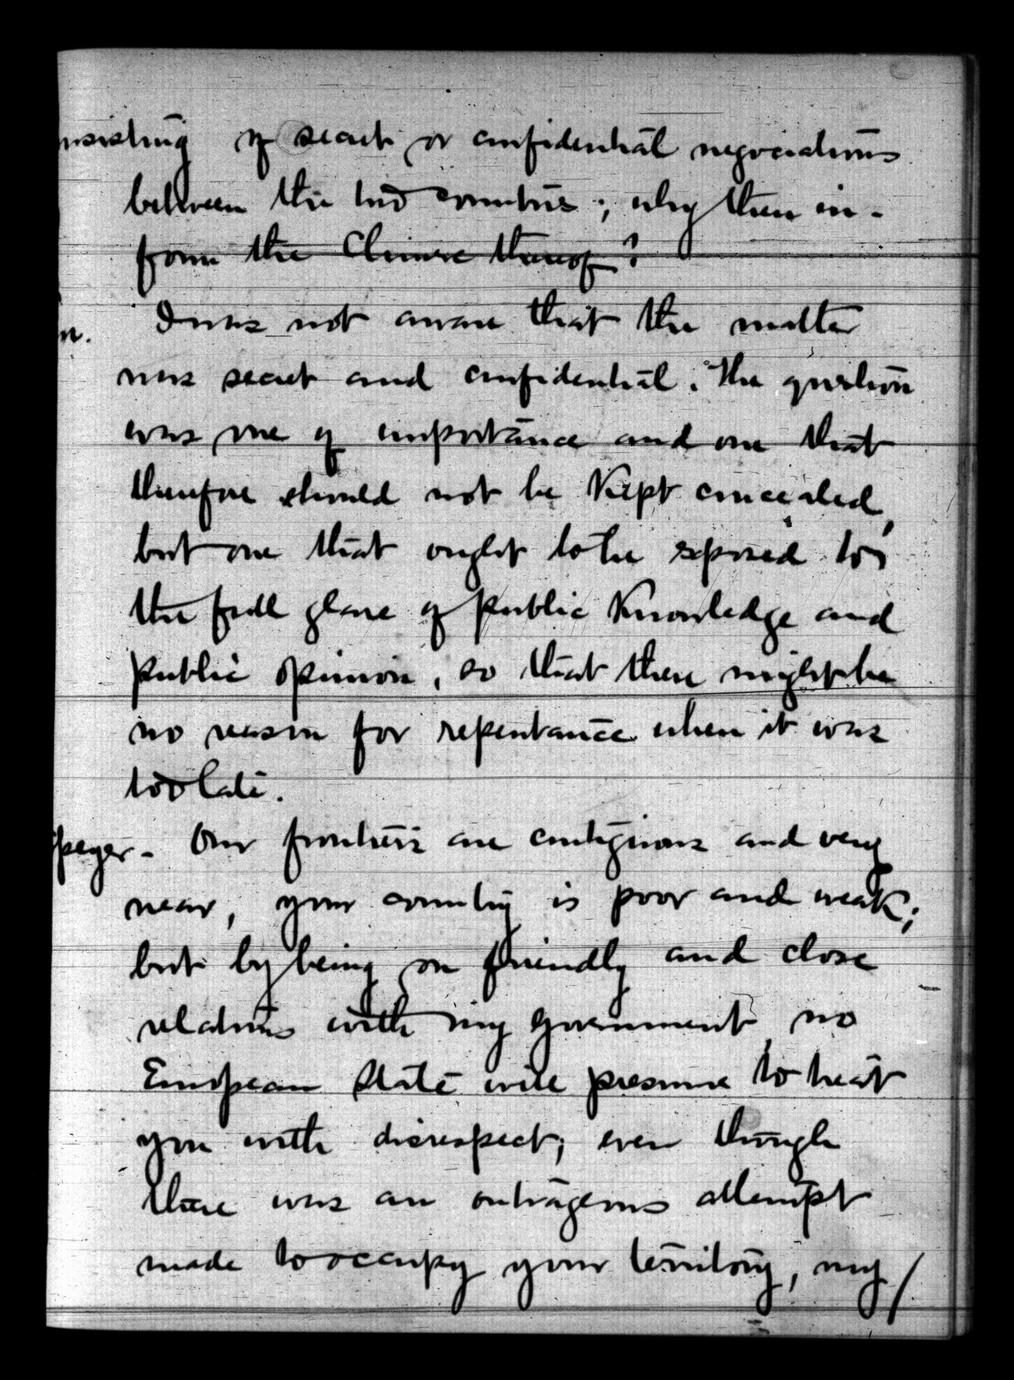 nsisting of secret or confidential negociations
between the two countries; why then in-
form the Chinese thereof?
n. I was not aware that the matter
was secret and confidential. The question
was one of importance and one that
therefore should not be kept concealed,
but one that ought to be exposed to
the full glare of public knowledge and
public opinion, so that there might be
no reason for repentance when it was
too late.
peyer - Our frontiers are contiguous and very
near, your country is poor and weak;
but by being on friendly and close
relations with my government, no
European State will presume to treat
you with disrespect; even though
there was an outrageous attempt
made to occupy your territory, my/